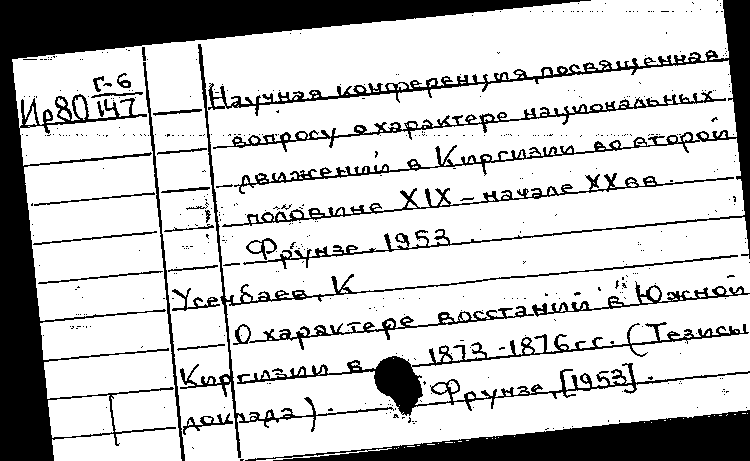 Г-6
Ир80 147
Научная конференция, посвященная
вопросу о характере национальных
движений в Киргизии во второй
половине XIX – начале XX вв.
Фрунзе. 1953
Усенбаев, К
О характере восстаний в Южной
Киргизии в 1873-1876 гг. (Тезисы
доклада). Фрунзе, [1953].